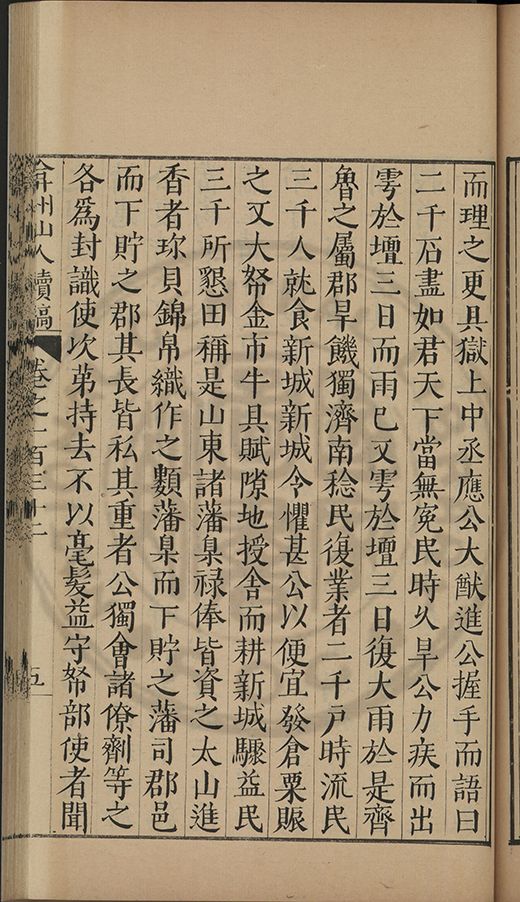 而理之更具獄上中丞應公大猷進公握手而語曰
二千石盡如君天下當無冤民時久旱公力疾而出
雩於壇三日而雨已又雩於壇三日復大雨於是齊
魯之屬郡旱饑獨濟南稔民復業者二千戶時流民
三千人就食新城新城令懼甚公以便宜發倉粟賑
之又大帑金市牛具賦隙地授舍而耕新城驟益民
三千所懇田稱是山東諸藩臬祿俸皆資之太山進
香者珎貝錦帛織作之類藩臬而下貯之藩司郡邑
而下貯之郡其長皆私其重者公獨會諸僚劑等之
各爲封識使次苐持去不以毫髮益守帑部使者聞
弇州山人續稿 卷之一百三十二 五